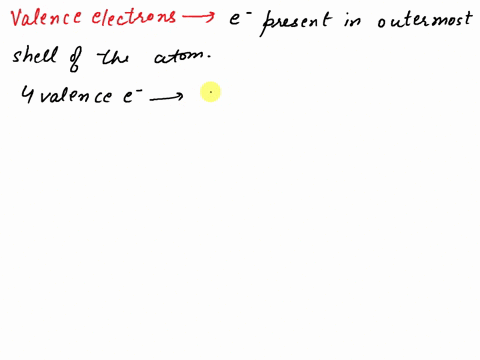 Valence electrons → e⁻ present in outermost
shell of the atom.
4 valence e⁻ →